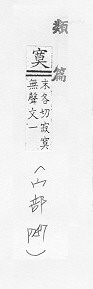 類篇
寞
末各切寂寞
無聲文一
(宀部